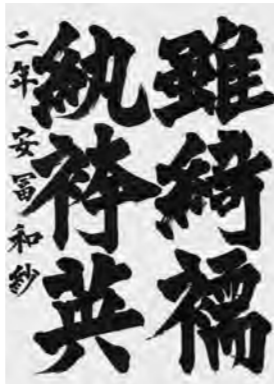 雖綺襦
紈袴英
二年 安冨和紗